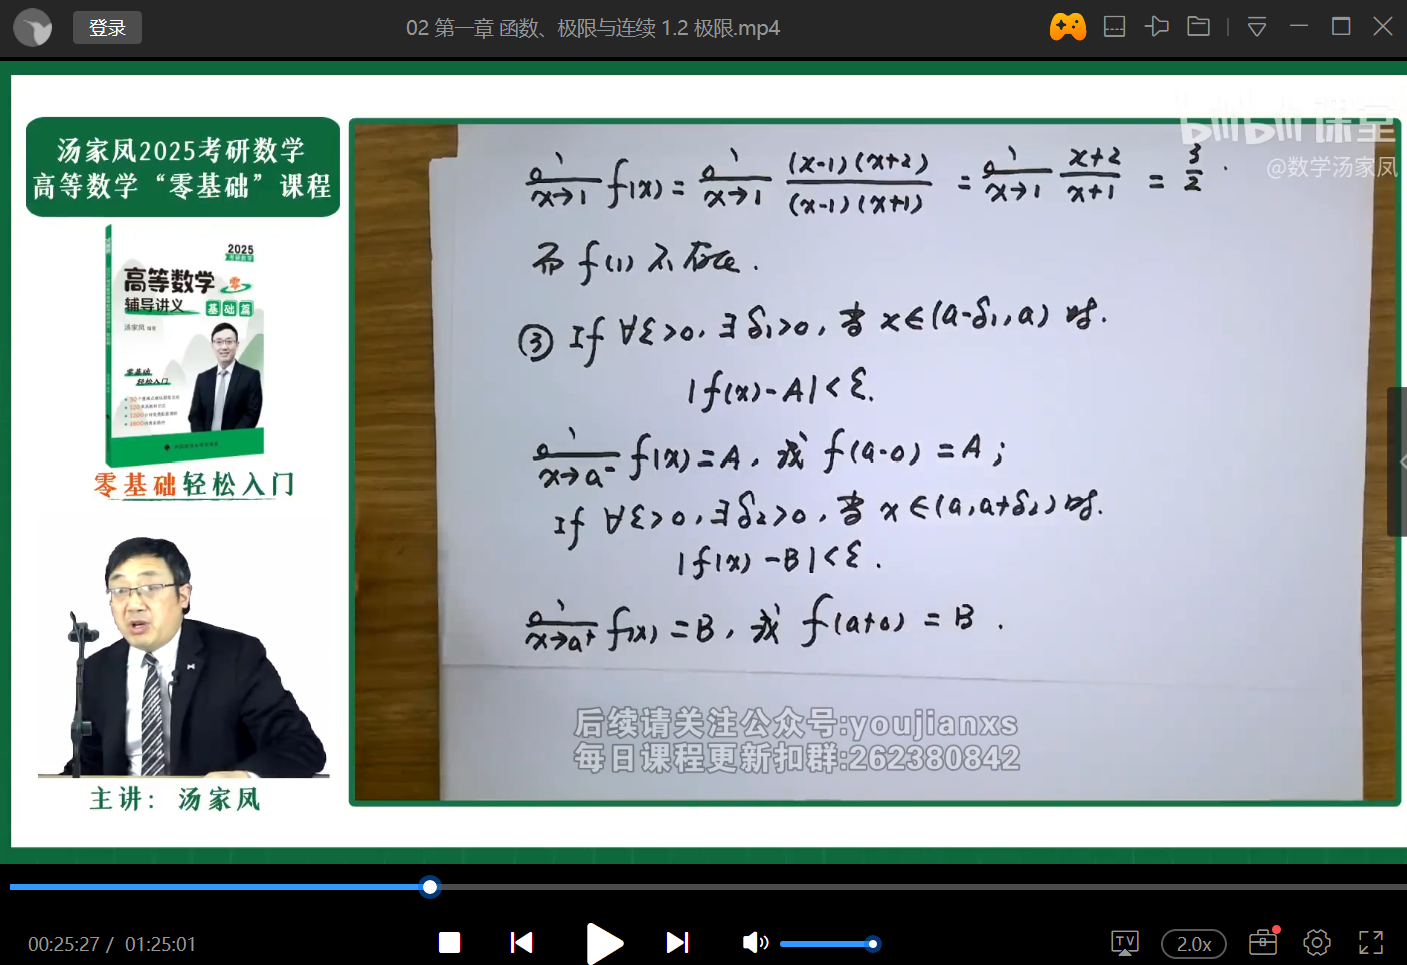 登录
02 第一章 函数、极限与连续 1.2 极限.mp4
汤家凤2025考研数学
高等数学“零基础”课程
2025
考研数学
高等数学
零
辅导讲义
基础篇
汤家凤 编著
零基础
轻松入门
零基础轻松入门
主讲：汤家凤
bilibili课堂
@数学汤家凤
x→1 f(x) = x→1 (x-1)(x+2) / (x-1)(x+1) = x→1 x+2 / x+1 = 3/2 .
而 f(1) 不存在.
③ If ∀ε>0, ∃δ₁>0, 当 x∈(a-δ₁,a) 时.
|f(x)-A|<ε.
x→a⁻ f(x)=A, 或 f(a-0)=A;
If ∀ε>0, ∃δ₂>0, 当 x∈(a,a+δ₂) 时.
|f(x)-B|<ε.
x→a⁺ f(x)=B, 或 f(a+0)=B.
后续请关注公众号:youjianxs
每日课程更新扣群:262380842
00:25:27 / 01:25:01
TV
2.0x